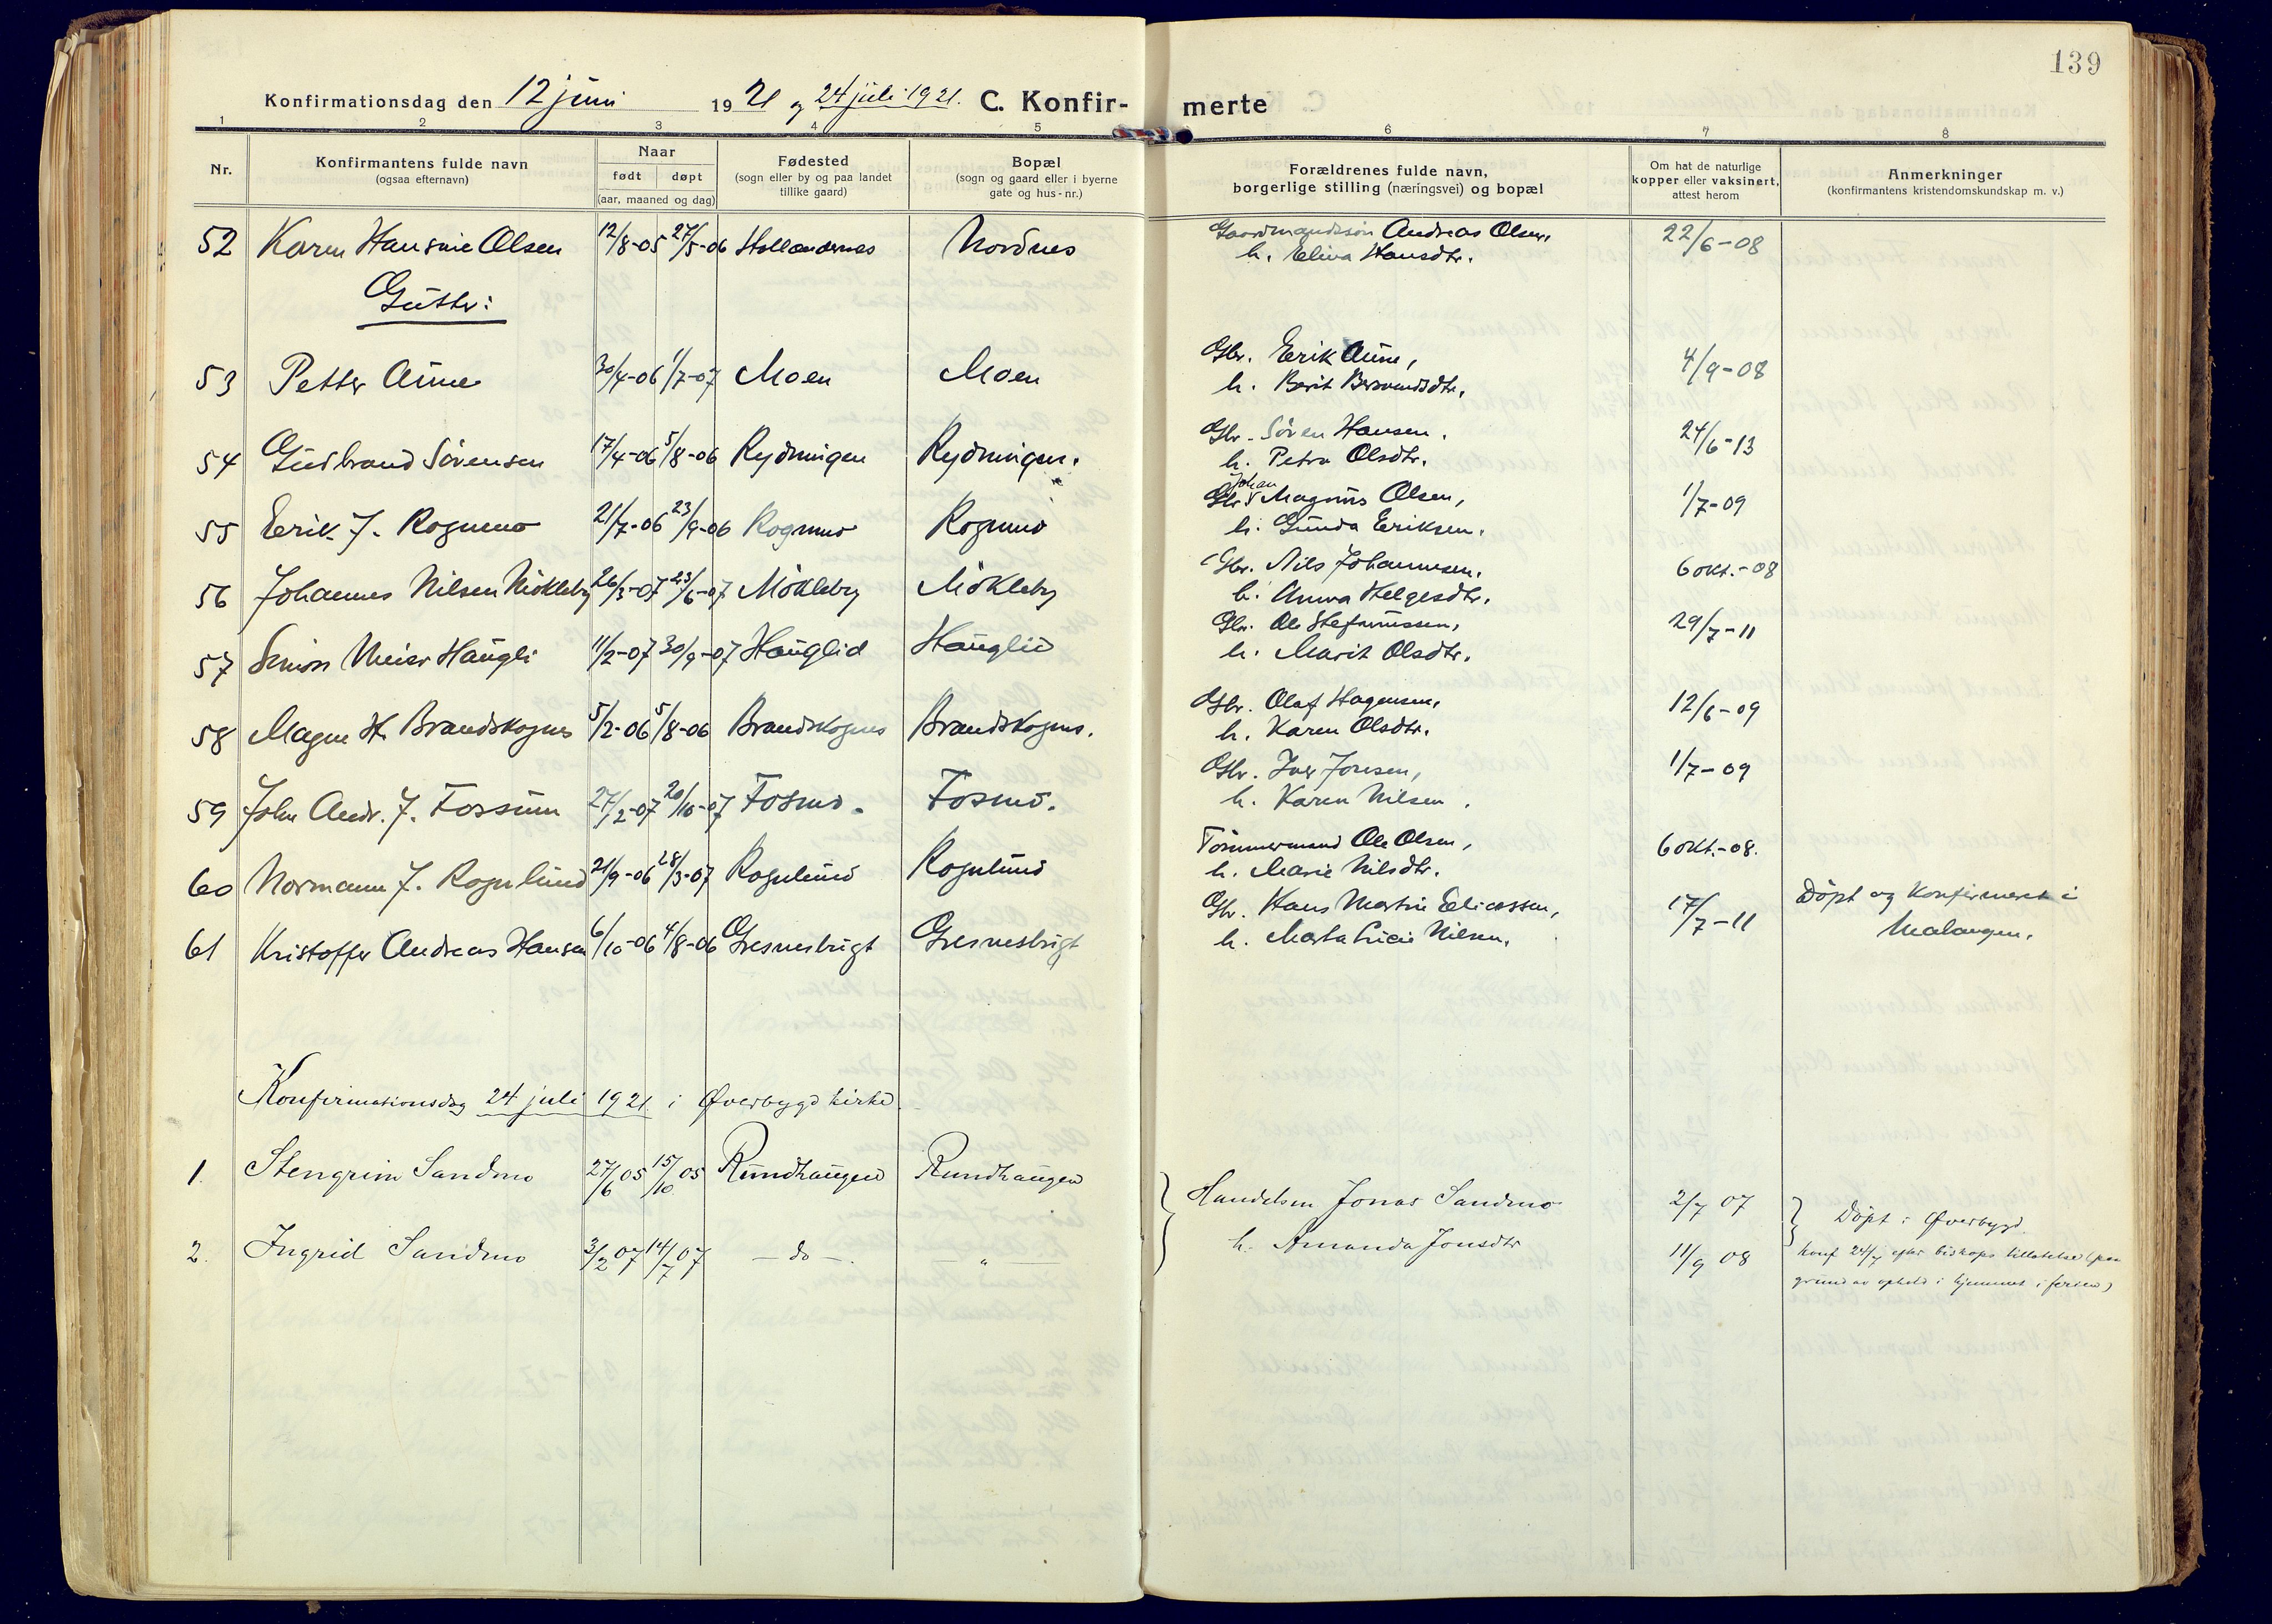 139
Konfirmationsdag den 12 juni 1921 og 24 juli 1921. C. Konfir- merte
1 2 3 4 5 6 7 8
Nr.
Konfirmantens fulde navn
(ogsaa efternavn)
Naar
født døpt
(aar, maaned og dag)
Fødested
(sogn eller by og paa landet
tillike gaard)
Bopæl
(sogn og gaard eller i byerne
gate og hus-nr.)
Forældrenes fulde navn,
borgerlige stilling (næringsvei) og bopæl
Om hat de naturlige
kopper eller vaksinert,
attest herom
Anmerkninger
(konfirmantens kristendomskundskap m. v.)
52 Karen Hansine Olsen 12/8-05 27/5-06 Hollendernes Nordnes Gaardmandssøn Andreas Olsen, 22/6-08
h. Elina Hansdtr.
Gutter:
53 Petter Aune 30/4-06 1/7-07 Moen Moen Gbr. Erik Aune, 4/9-08
h. Berit Bersvendsdtr.
54 Gudbrand Sörensen 17/4-06 5/8-06 Rydningen Rydningen. Gbr. Sören Hansen. 24/6-13
h. Petra Olsdtr.
55 Erik J. Rognmo 21/7-06 23/9-06 Rognmo Rognmo Gbr. Johan Magnus Olsen, 1/7-09
h. Gunda Eriksen.
56 Johannes Nilsen Mökleby 26/3-07 23/6-07 Mökleby Mökleby Gbr. Nils Johannesen, 6 okt.-08
h. Anna Helgesdtr.
57 Simon Meier Haugli 11/2-07 30/9-07 Hauglid Hauglid Gbr. Ole Stefanussen, 29/7-11
h. Marit Olsdtr.
58 Magne H. Brandskognes 5/2-06 5/8-06 Brandskognes Brandskognes. Gbr. Olaf Hagensen, 12/6-09
h. Karen Olsdtr.
59 John Andr. J. Fossum 27/2-07 20/10-07 Fosmo. Fosmo. Gbr. Iver Jonsen, 1/7-09
h. Karen Nilsen.
60 Normann J. Rognlund 21/9-06 28/3-07 Rognlund Rognlund Tömmermand Ole Olsen, 6 okt.-08.
h. Marie Nilsdtr.
61 Kristoffer Andreas Hansen 6/10-06 4/8-06 Gresnesbugt Gresnesbugt Gbr. Hans Martin Eliassen, 17/7-11 Döpt og konfirmeret i
h. Marta Lucie Nilsen. Malangen.
Konfirmationsdag 24 juli 1921 i Øverbygd kirke
1. Stengrim Sandmo 27/6 05 15/10 05 Rundhaugen Rundhaugen Handelsm Jonas Sandmo 2/7 07 Döpt i Øverbygd
2. Ingrid Sandmo 3/2 07 14/7 07 — do — — „ — h. Amanda Jonsdtr 11/9 08 konf 24/7 efter biskops tillatelse (paa
grund av ophold i hjemmet i ferien)